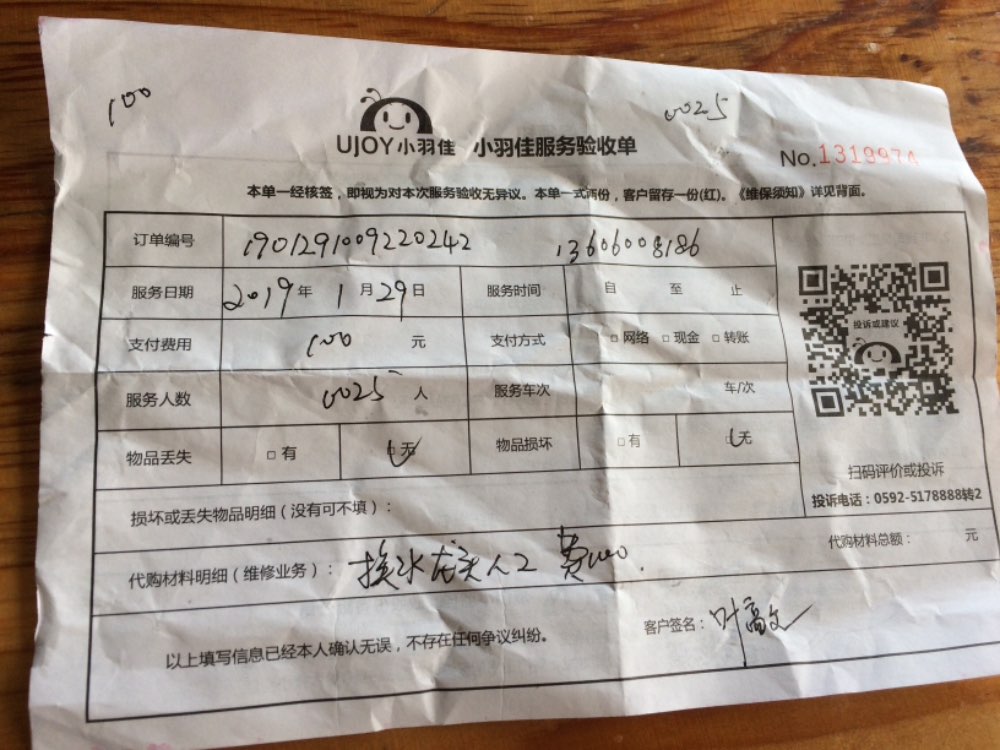 100
0025
UJOY小羽佳 小羽佳服务验收单
No.1319974
本单一经核签，即视为对本次服务验收无异议。本单一式两份，客户留存一份(红)。《维保须知》详见背面。
订单编号 1901291009220242 13606008186
服务日期 2019年 1月29日 服务时间 自 至 止
支付费用 100 元 支付方式 □网络 □现金 □转账
投诉或建议
服务人数 0025 人 服务车次 车/次
物品丢失 □有 □无 物品损坏 □有 □无
扫码评价或投诉
投诉电话：0592-5178888转2
损坏或丢失物品明细（没有可不填）：
代购材料明细（维修业务）： 换水龙头人工费100
代购材料总额： 元
以上填写信息已经本人确认无误，不存在任何争议纠纷。
客户签名：叶高文